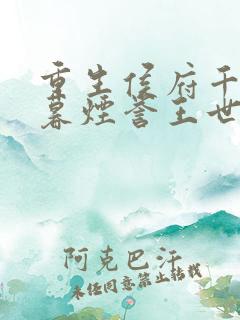 重生侯府千
暮煙誉王世
阿克巴汗
未经同意禁止转载